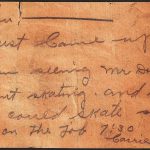 ust Came up
seeing Mr D
ut skating, and
could skate s
on the Job 7:30
Carrie